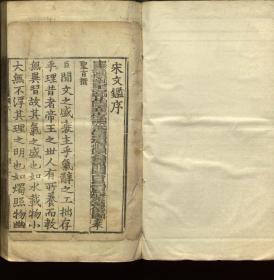 宋文鑑序
聖旨撰
臣聞文之盛衰主乎氣辭之工拙存
乎理昔者帝王之世人有所養而敎
無異習故其氣之盛也如水載物小
大無不浮其理之明也如燭照物幽